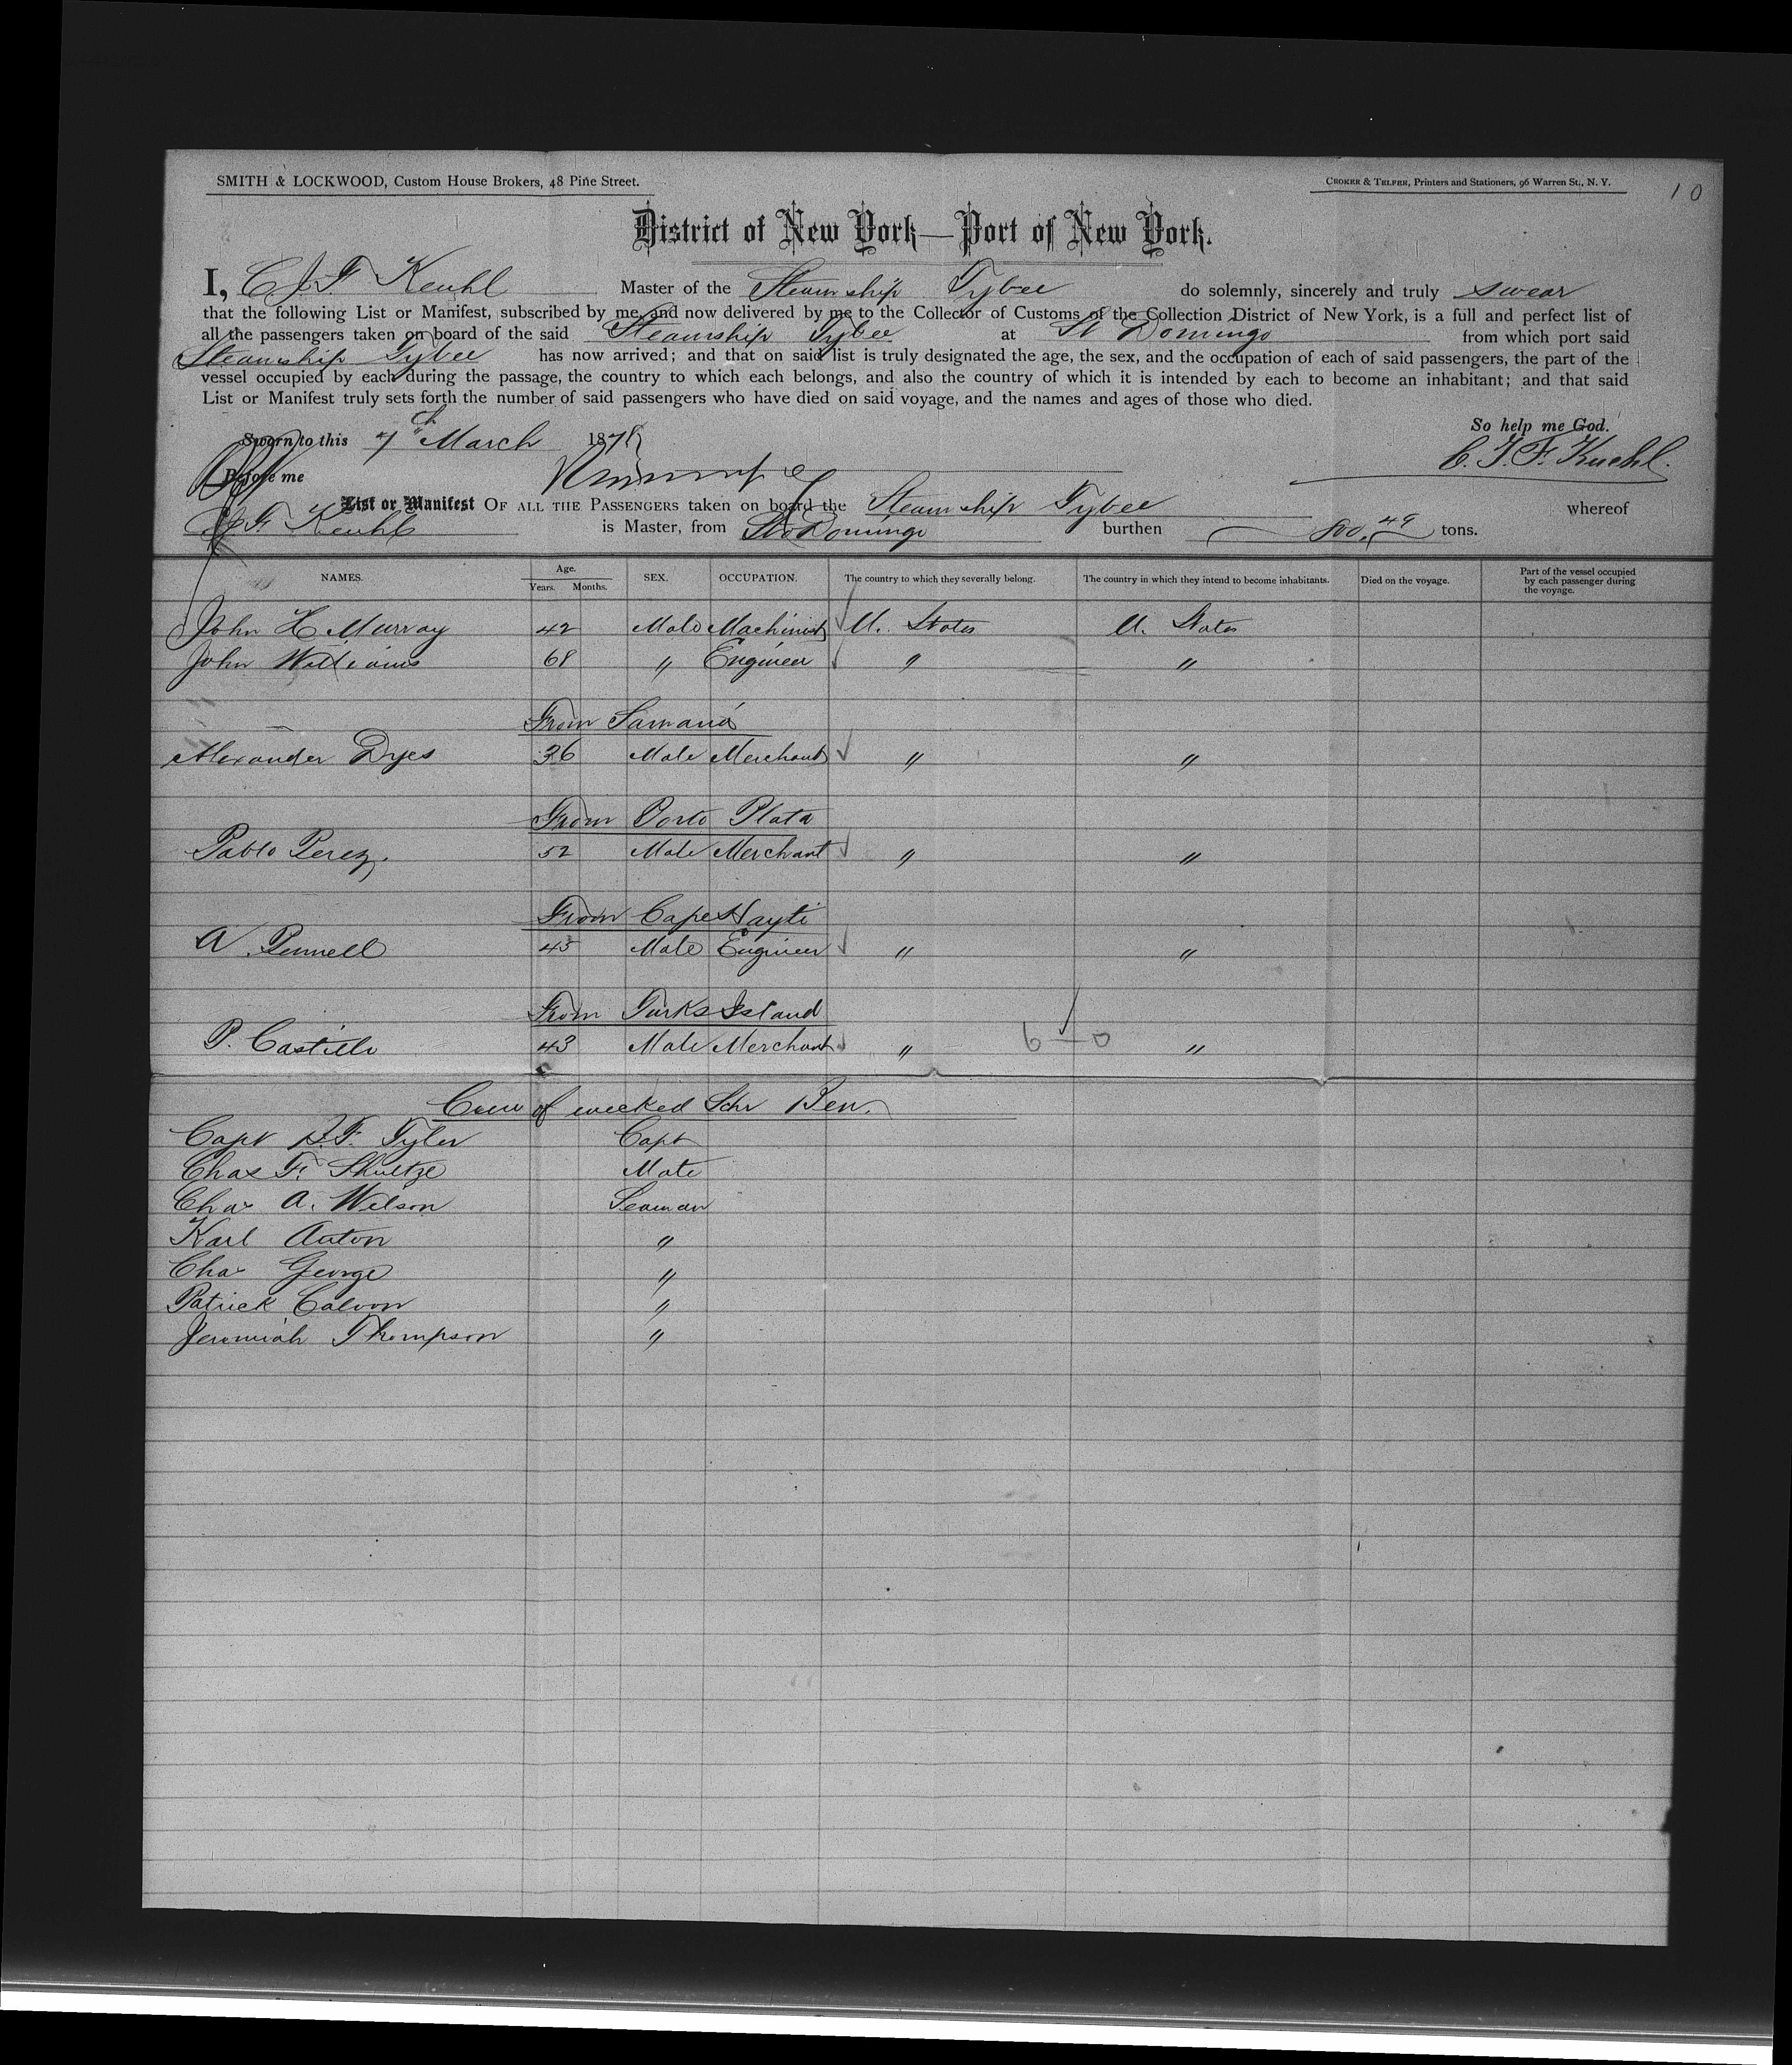 SMITH & LOCKWOOD, Custom House Brokers, 48 Pine Street.
CROKER & TELFER, Printers and Stationers, 96 Warren St., N. Y.
10
District of New York—Port of New York.
I, C J. F Keuhl Master of the Steamship Tybee do solemnly, sincerely and truly swear
that the following List or Manifest, subscribed by me, and now delivered by me to the Collector of Customs of the Collection District of New York, is a full and perfect list of
all the passengers taken on board of the said Steamship Tybee at St Domingo from which port said
Steamship Tybee has now arrived; and that on said list is truly designated the age, the sex, and the occupation of each of said passengers, the part of the
vessel occupied by each during the passage, the country to which each belongs, and also the country of which it is intended by each to become an inhabitant; and that said
List or Manifest truly sets forth the number of said passengers who have died on said voyage, and the names and ages of those who died.
So help me God.
Sworn to this 7th March 1878
C. J. F. Kuehl.
Before me
List or Manifest OF ALL THE PASSENGERS taken on board the Steamship Tybee whereof
C J F Keuhl is Master, from Sto Domingo burthen 800.49 tons.
NAMES. Age. Years. Months. SEX. OCCUPATION. The country to which they severally belong. The country in which they intend to become inhabitants. Died on the voyage. Part of the vessel occupied by each passenger during the voyage.
John H Murray 42 Male Machinist U. States U. States
John Williams 68 " Engineer " "
From Samaná
Alexander Dyes 36 Male Merchant " "
From Porto Plata
Pablo Perez. 52 Male Merchant " "
From Cape Hayti
A. Pennell 45 Male Engineer " "
From Turks Island
P. Castillo 43 Male Merchant " 6 - 0 "
Crew of wecked Schr Ben.
Capt D. F. Tyler Capt
Chas F. Shultze Mate
Chas A. Wilson Seaman
Karl Anton "
Chas George "
Patrick Calvon "
Jeremiah Thompson "